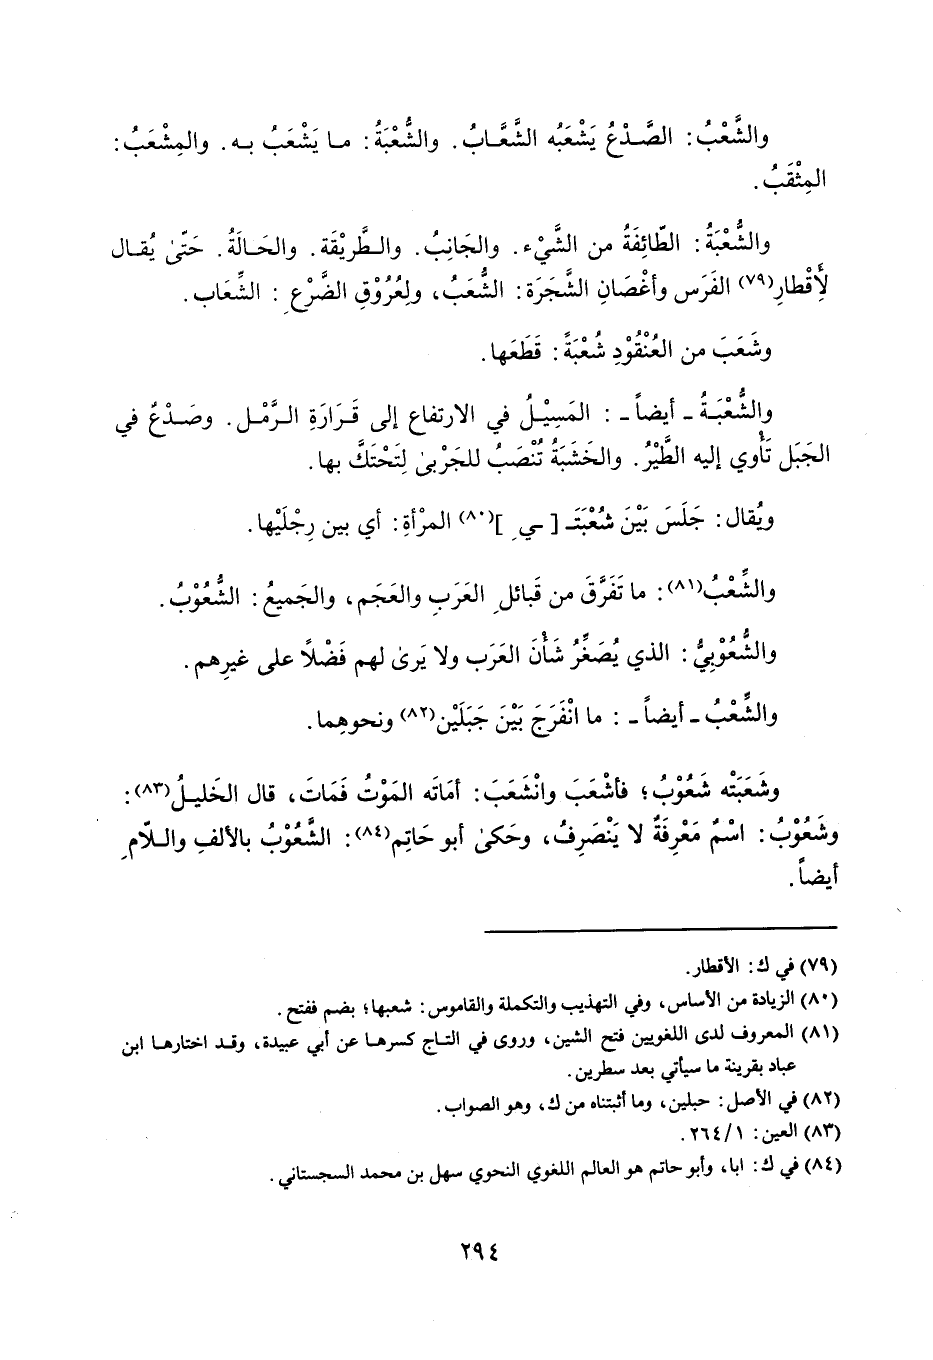 والشَّعْبُ: الصَّدْعُ يَشْعَبُه الشَّعَّابُ. والشُّعْبَةُ: ما يَشْعَبُ به. والمِشْعَبُ:
المِثْقَبُ.
والشُّعْبَةُ: الطّائِفَةُ من الشَّيْء. والجَانِبُ. والطَّرِيْقَة. والحَالَةُ. حَتّىٰ يُقال
لِأَقْطارِ(٧٩) الفَرَس وأغْصَانِ الشَّجَرَة: الشُّعَبُ، ولِعُرُوْقِ الضَّرْعِ: الشِّعَاب.
وشَعَبَ من العُنْقُوْدِ شُعْبَةً: قَطَعَها.
والشُّعْبَةُ - أيضاً -: المَسِيْلُ في الارتفاع إلى قَرَارَةِ الرَّمْل. وصَدْعٌ في
الجَبَل تَأْوي إليه الطَّيْرُ. والخَشَبَةُ تُنْصَبُ للجَرْبىٰ لِتَحْتَكَّ بها.
ويُقال: جَلَسَ بَيْنَ شُعْبَتَـ [ـيِ](٨٠) المرْأةِ: أي بين رِجْلَيْها.
والشِّعْبُ(٨١): ما تَفَرَّقَ من قَبائلِ العَرَبِ والعَجَم، والجَميعُ: الشُّعُوْبُ.
والشُّعُوْبيُّ: الذي يُصَغِّرُ شَأْنَ العَرَب ولا يَرىٰ لهم فَضْلاً على غيرِهم.
والشِّعْبُ - أيضاً -: ما انْفَرَجَ بَيْنَ جَبَلَيْن(٨٢) ونحوِهِما.
وشَعَبَتْه شَعُوْبُ؛ فأشْعَبَ وانْشَعَبَ: أمَاتَه المَوْتُ فَمَاتَ، قال الخَليلُ(٨٣):
وشَعُوْبُ: اسْمٌ مَعْرِفَةٌ لا يَنْصَرِفُ، وحَكىٰ أبو حَاتِم(٨٤): الشَّعُوْبُ بالألفِ واللّامِ
أيضاً.
(٧٩) في ك: الأقطار.
(٨٠) الزيادة من الأساس، وفي التهذيب والتكملة والقاموس: شعبها؛ بضم ففتح.
(٨١) المعروف لدى اللغويين فتح الشين، وروى في التاج كسرها عن أبي عبيدة، وقد اختارها ابن
عباد بقرينة ما سيأتي بعد سطرين.
(٨٢) في الأصل: حبلين، وما أثبتناه من ك، وهو الصواب.
(٨٣) العين: ٢٦٤/١.
(٨٤) في ك: ابا، وأبو حاتم هو العالم اللغوي النحوي سهل بن محمد السجستاني.
٢٩٤